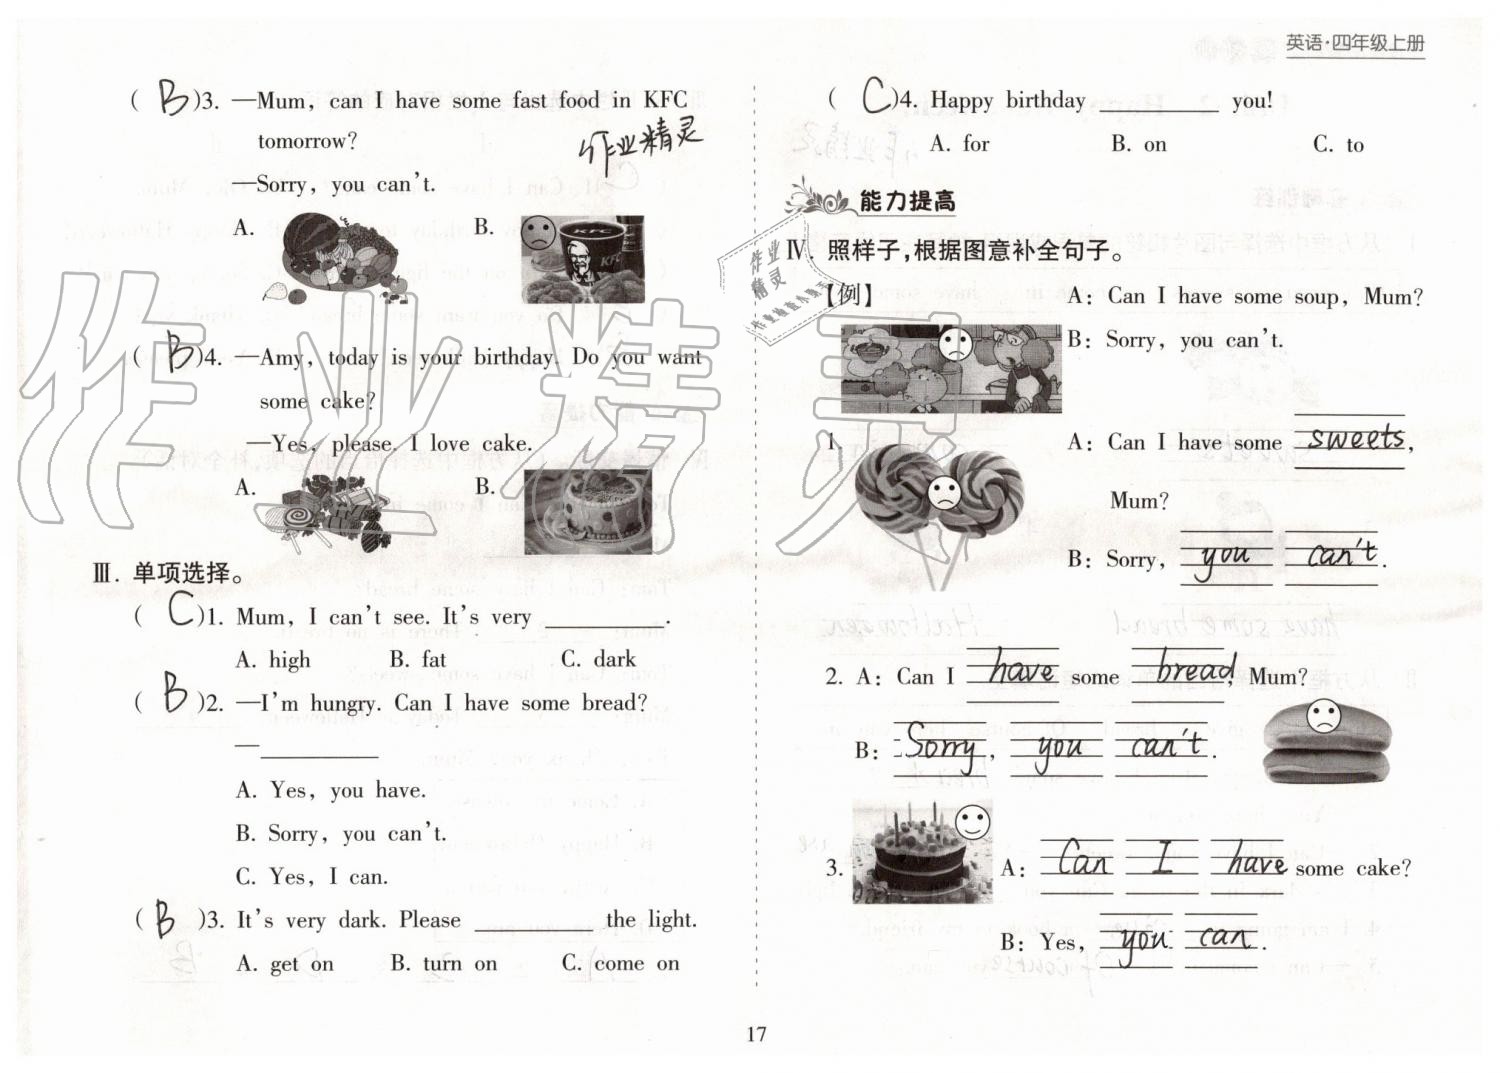 英语·四年级上册
( B )3. —Mum, can I have some fast food in KFC
tomorrow?
作业精灵
—Sorry, you can't.
A. B.
KFC
KFC
( B )4. —Amy, today is your birthday. Do you want
some cake?
—Yes, please. I love cake.
A. B.
Ⅲ. 单项选择。
( C )1. Mum, I can't see. It's very ________.
A. high B. fat C. dark
( B )2. —I'm hungry. Can I have some bread?
—________
A. Yes, you have.
B. Sorry, you can't.
C. Yes, I can.
( B )3. It's very dark. Please ________ the light.
A. get on B. turn on C. come on
( C )4. Happy birthday ________ you!
A. for B. on C. to
能力提高
作业
精灵
Ⅳ. 照样子,根据图意补全句子。
【例】
A: Can I have some soup, Mum?
B: Sorry, you can't.
1.
A: Can I have some sweets,
Mum?
B: Sorry, you can't.
2. A: Can I have some bread, Mum?
B: Sorry, you can't.
3. A: Can I have some cake?
B: Yes, you can.
17
作业精灵